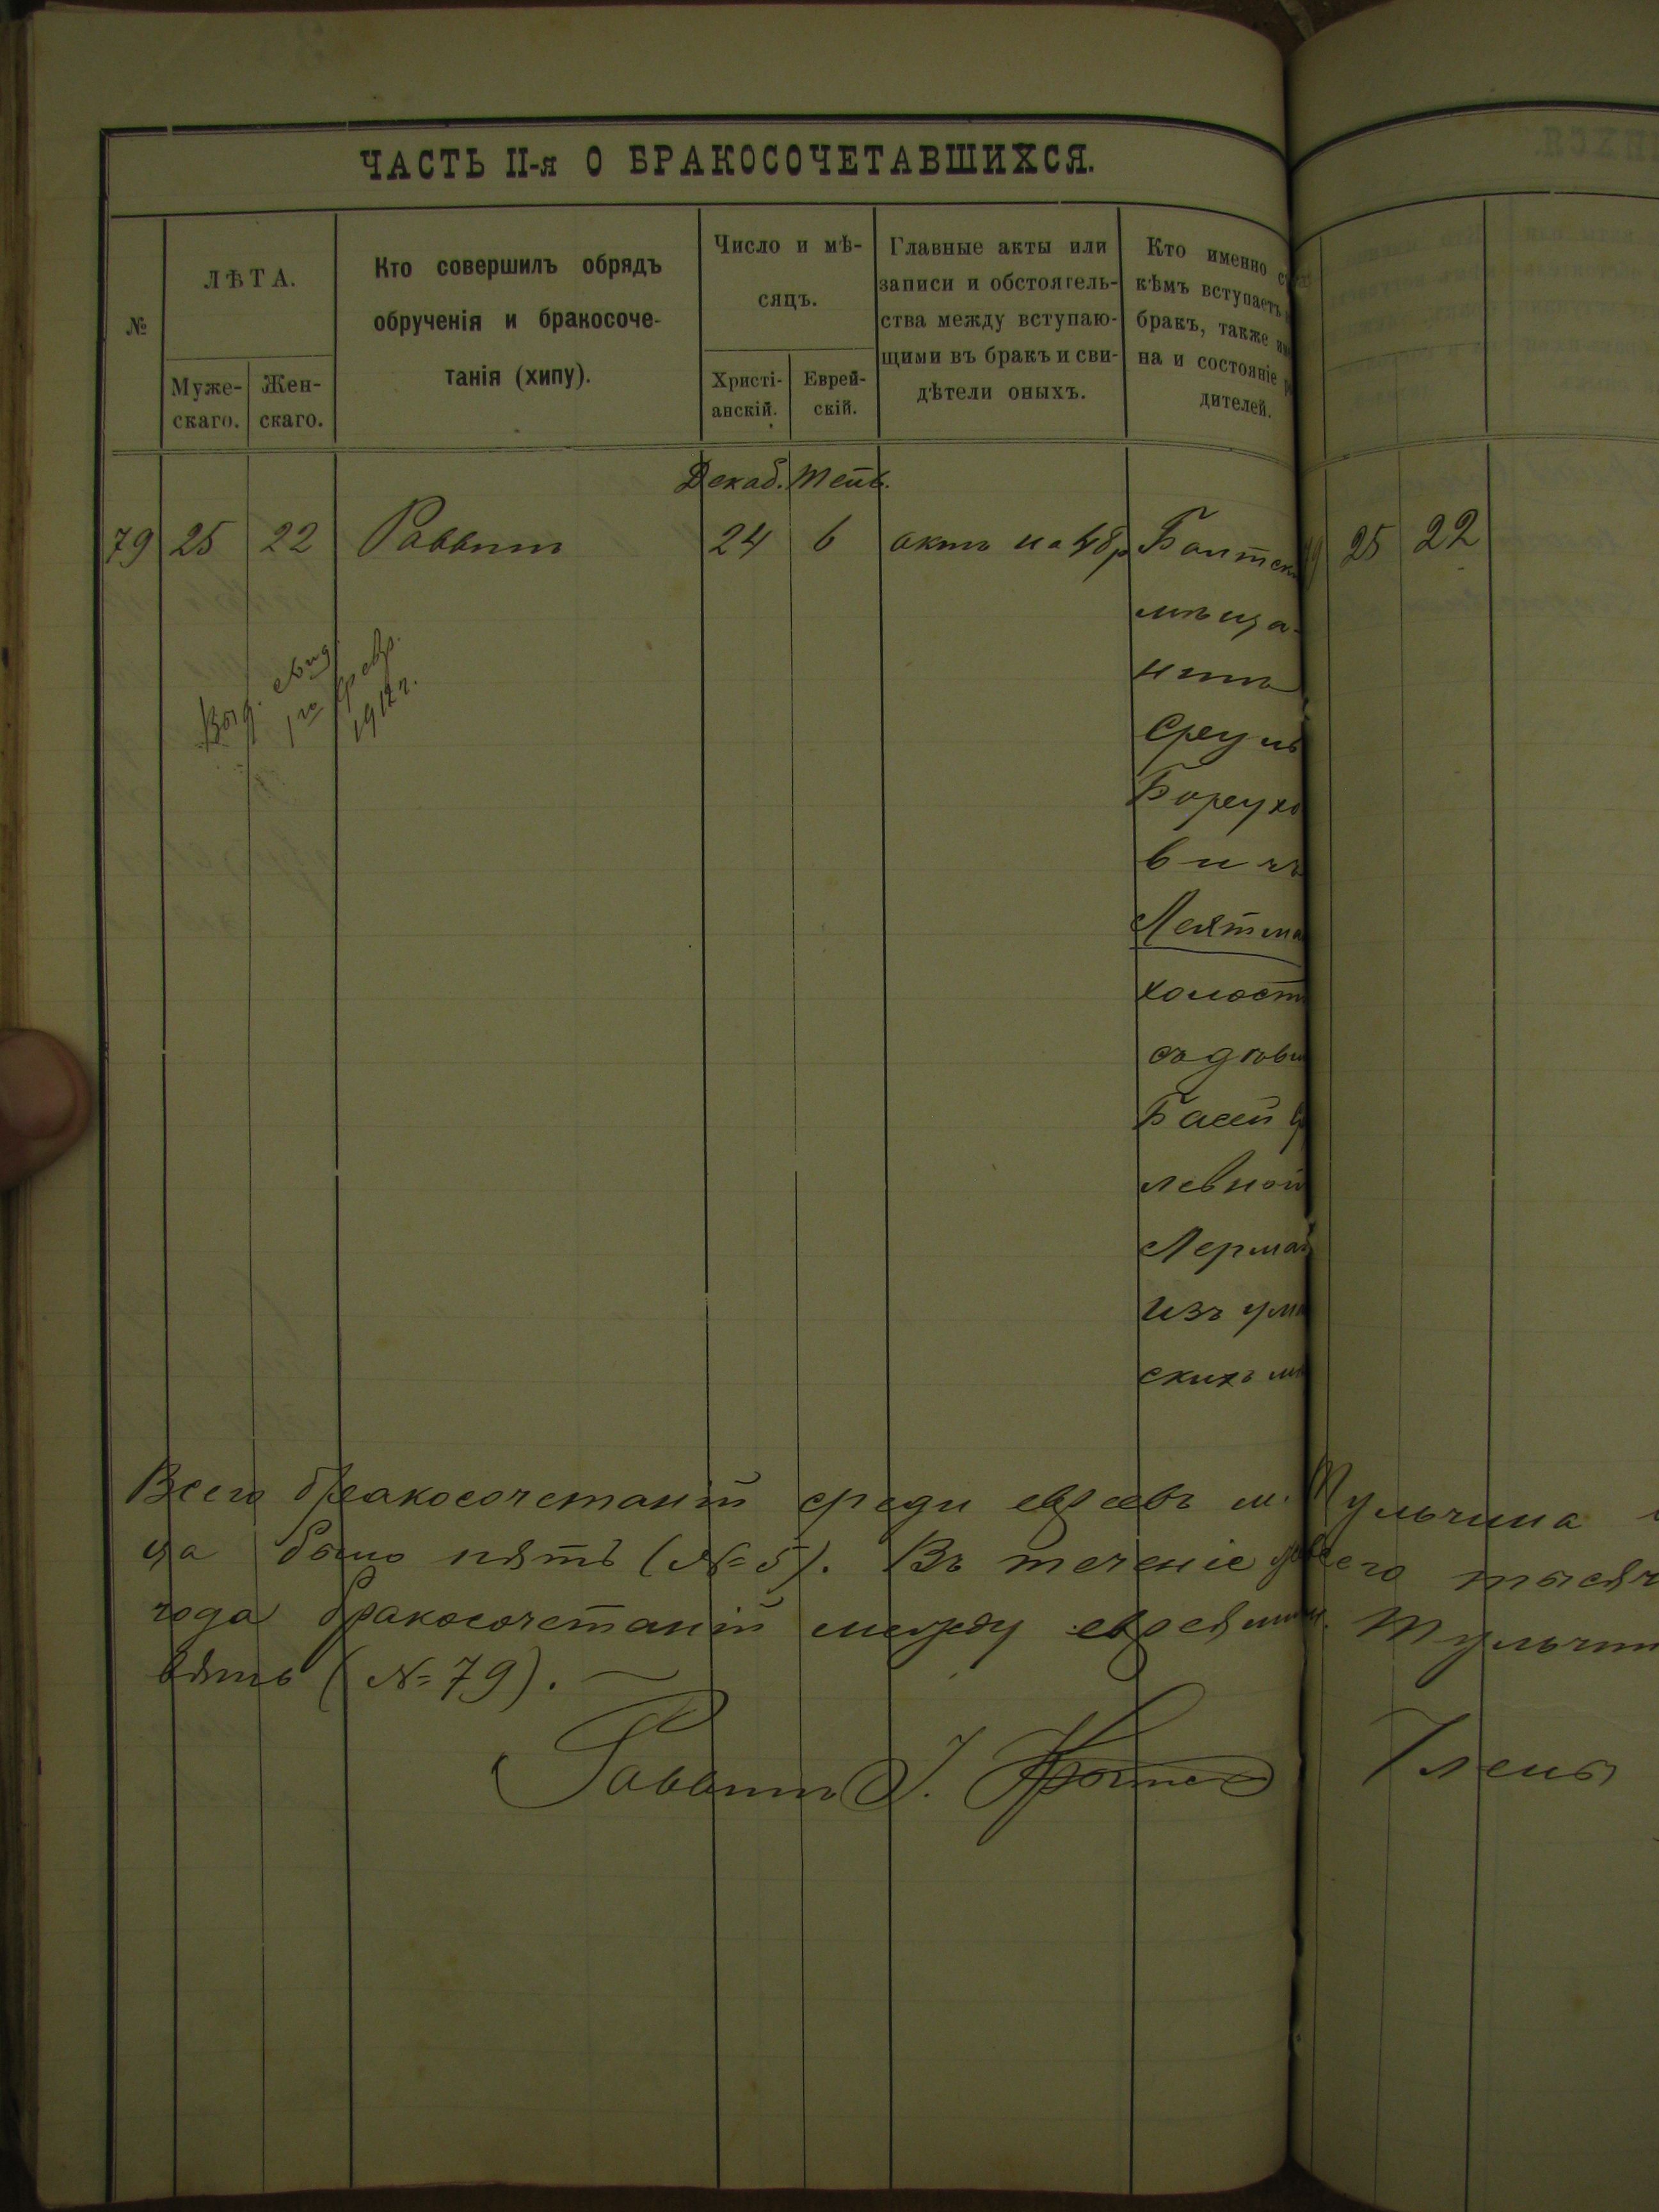 ЧАСТЬ II-я О БРАКОСОЧЕТАВШИХСЯ.
№
ЛѢТА.
Муже-
скаго.
Жен-
скаго.
Кто совершилъ обрядъ
обрученія и бракосоче-
танія (хипу).
Число и мѣ-
сяцъ.
Христі-
анскій.
Еврей-
скій.
Главные акты или
записи и обстоятель-
ства между вступаю-
щими въ бракъ и сви-
дѣтели оныхъ.
Кто именно съ
кѣмъ вступаетъ
бракъ, также
на и состояніе
дителей.
Декаб. Тейв.
79 25 22 Раввинъ 24 6 актъ на 48 р
Балтск
мѣща-
нинъ
Сруль
Борухо
вичъ
Лейтма
холост
съ дѣви
Басей
левной
Лерма
изъ ума
скихъ
Выд. свид.
1го февр.
1912 г.
25 22
Всего бракосочетаній среди евреевъ м. Тульчина
ца было пять (№ 5). Въ теченіе всего тысяч
года бракосочетаній между евреями м. Тульчин
вять (№ 79).
Раввинъ
Члены